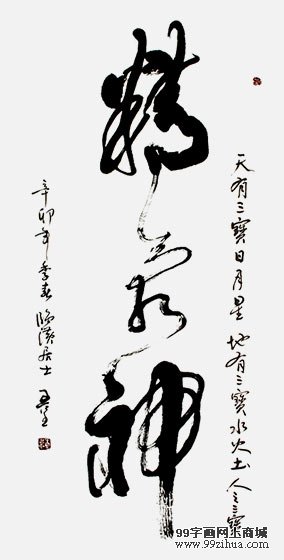 天有三寶日月星 地有三寶水火土 人之三寶
精氣神
辛卯年季春 居士
99字画网上商城
www.99zihua.com